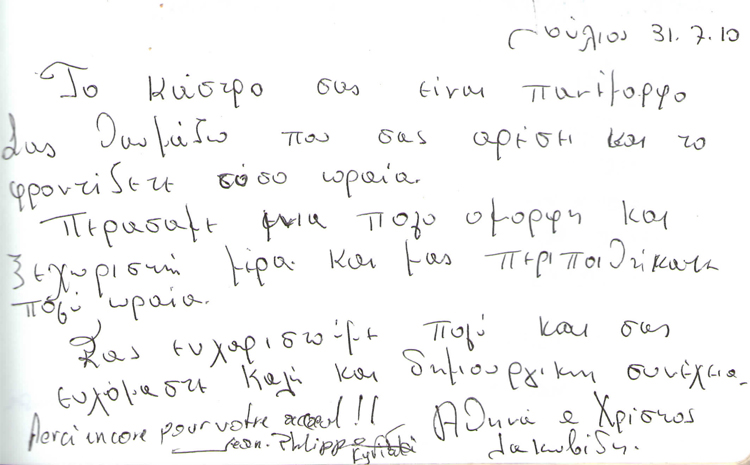 Ιούλιος 31.7.10
Το κάστρο σας είναι πανέμορφο
Σας θαυμάζω που σας αρέσει και το
φροντίζετε τόσο ωραία.
Περάσαμε μια πολύ όμορφη και
ξεχωριστή μέρα και μας περιποιηθήκατε
πολύ ωραία.
Σας ευχαριστούμε πολύ και σας
ευχόμαστε καλή και δημιουργική συνέχεια.
Merci encore pour votre accueil!! Αθηνά & Χρίστος
Jean-Philippe Kyriaki Ιακωβίδη.